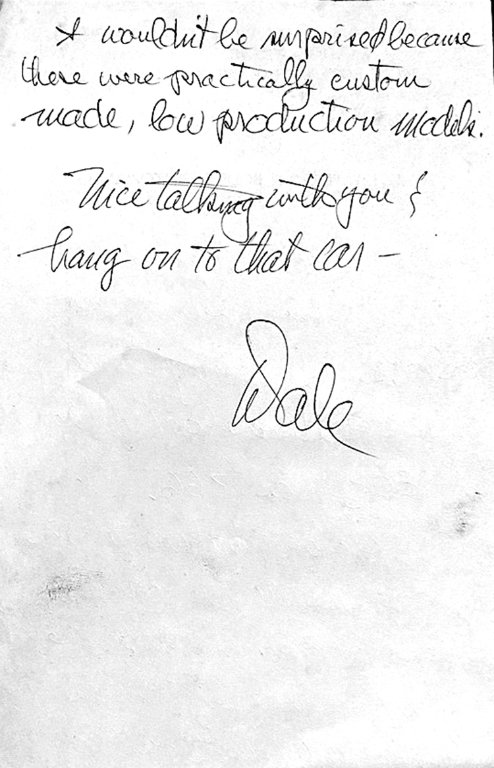 I wouldn't be surprised because
these were practically custom
made, low production models.
Nice talking with you &
hang on to that car —
Dale